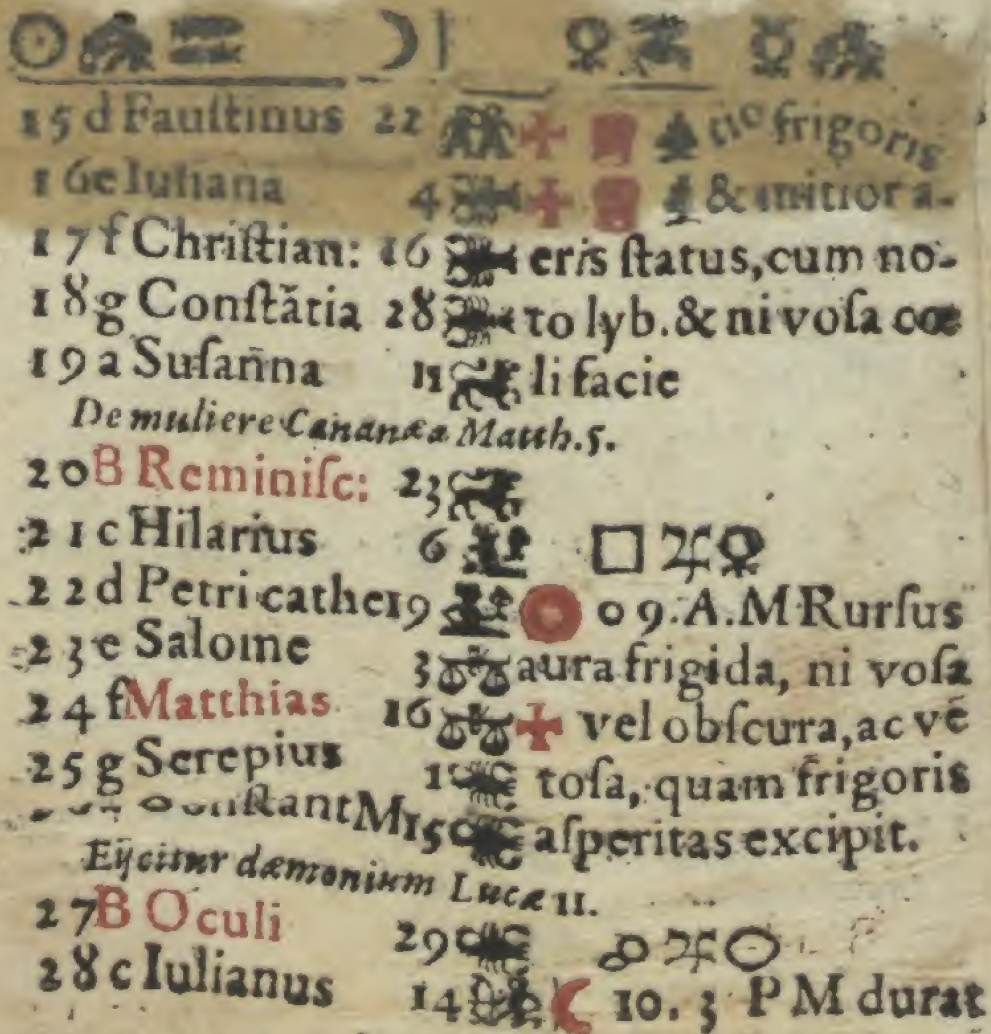 ☉ ♒ ☽ ♀ ☿
15 d Fauſtinus 22 tio frigoris
16 e Iuliana 4 & mitior a-
17 f Chriſtian: 16 eris ſtatus, cum no-
18 g Conſtãtia 28 to lyb. & ni voſa cœ
19 a Suſan̄na 11 li facie
De muliere Cananæa Matth. 5.
20 B Reminiſc: 23
21 c Hilarius 6 □ ♃ ♀
22 d Petri cathe 19 0 9. A. M Rurſus
23 e Salome 3 aura frigida, ni voſa
24 f Matthias 16 vel obſcura, ac vẽ
25 g Serepius 1 toſa, quam frigoris
ſtant M 15 aſperitas excipit.
Eijcitur dæmonium Lucæ 11.
27 B Oculi 29 ☍ ♃ ☉
28 c Iulianus 14 ☾ 10. 3 P M durat